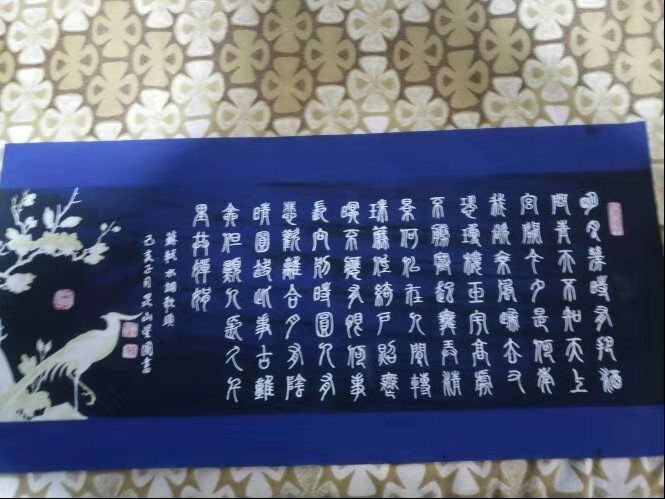 明月幾時有把酒
問青天不知天上
宮闕今夕是何年
我欲乘風歸去又
恐瓊樓玉宇高處
不勝寒起舞弄清
影何似在人間轉
朱閣低綺戶照無
眠不應有恨何事
長向別時圓人有
悲歡離合月有陰
晴圓缺此事古難
全但願人長久千
里共嬋娟
蘇軾水調歌頭
己亥子月 山 國書